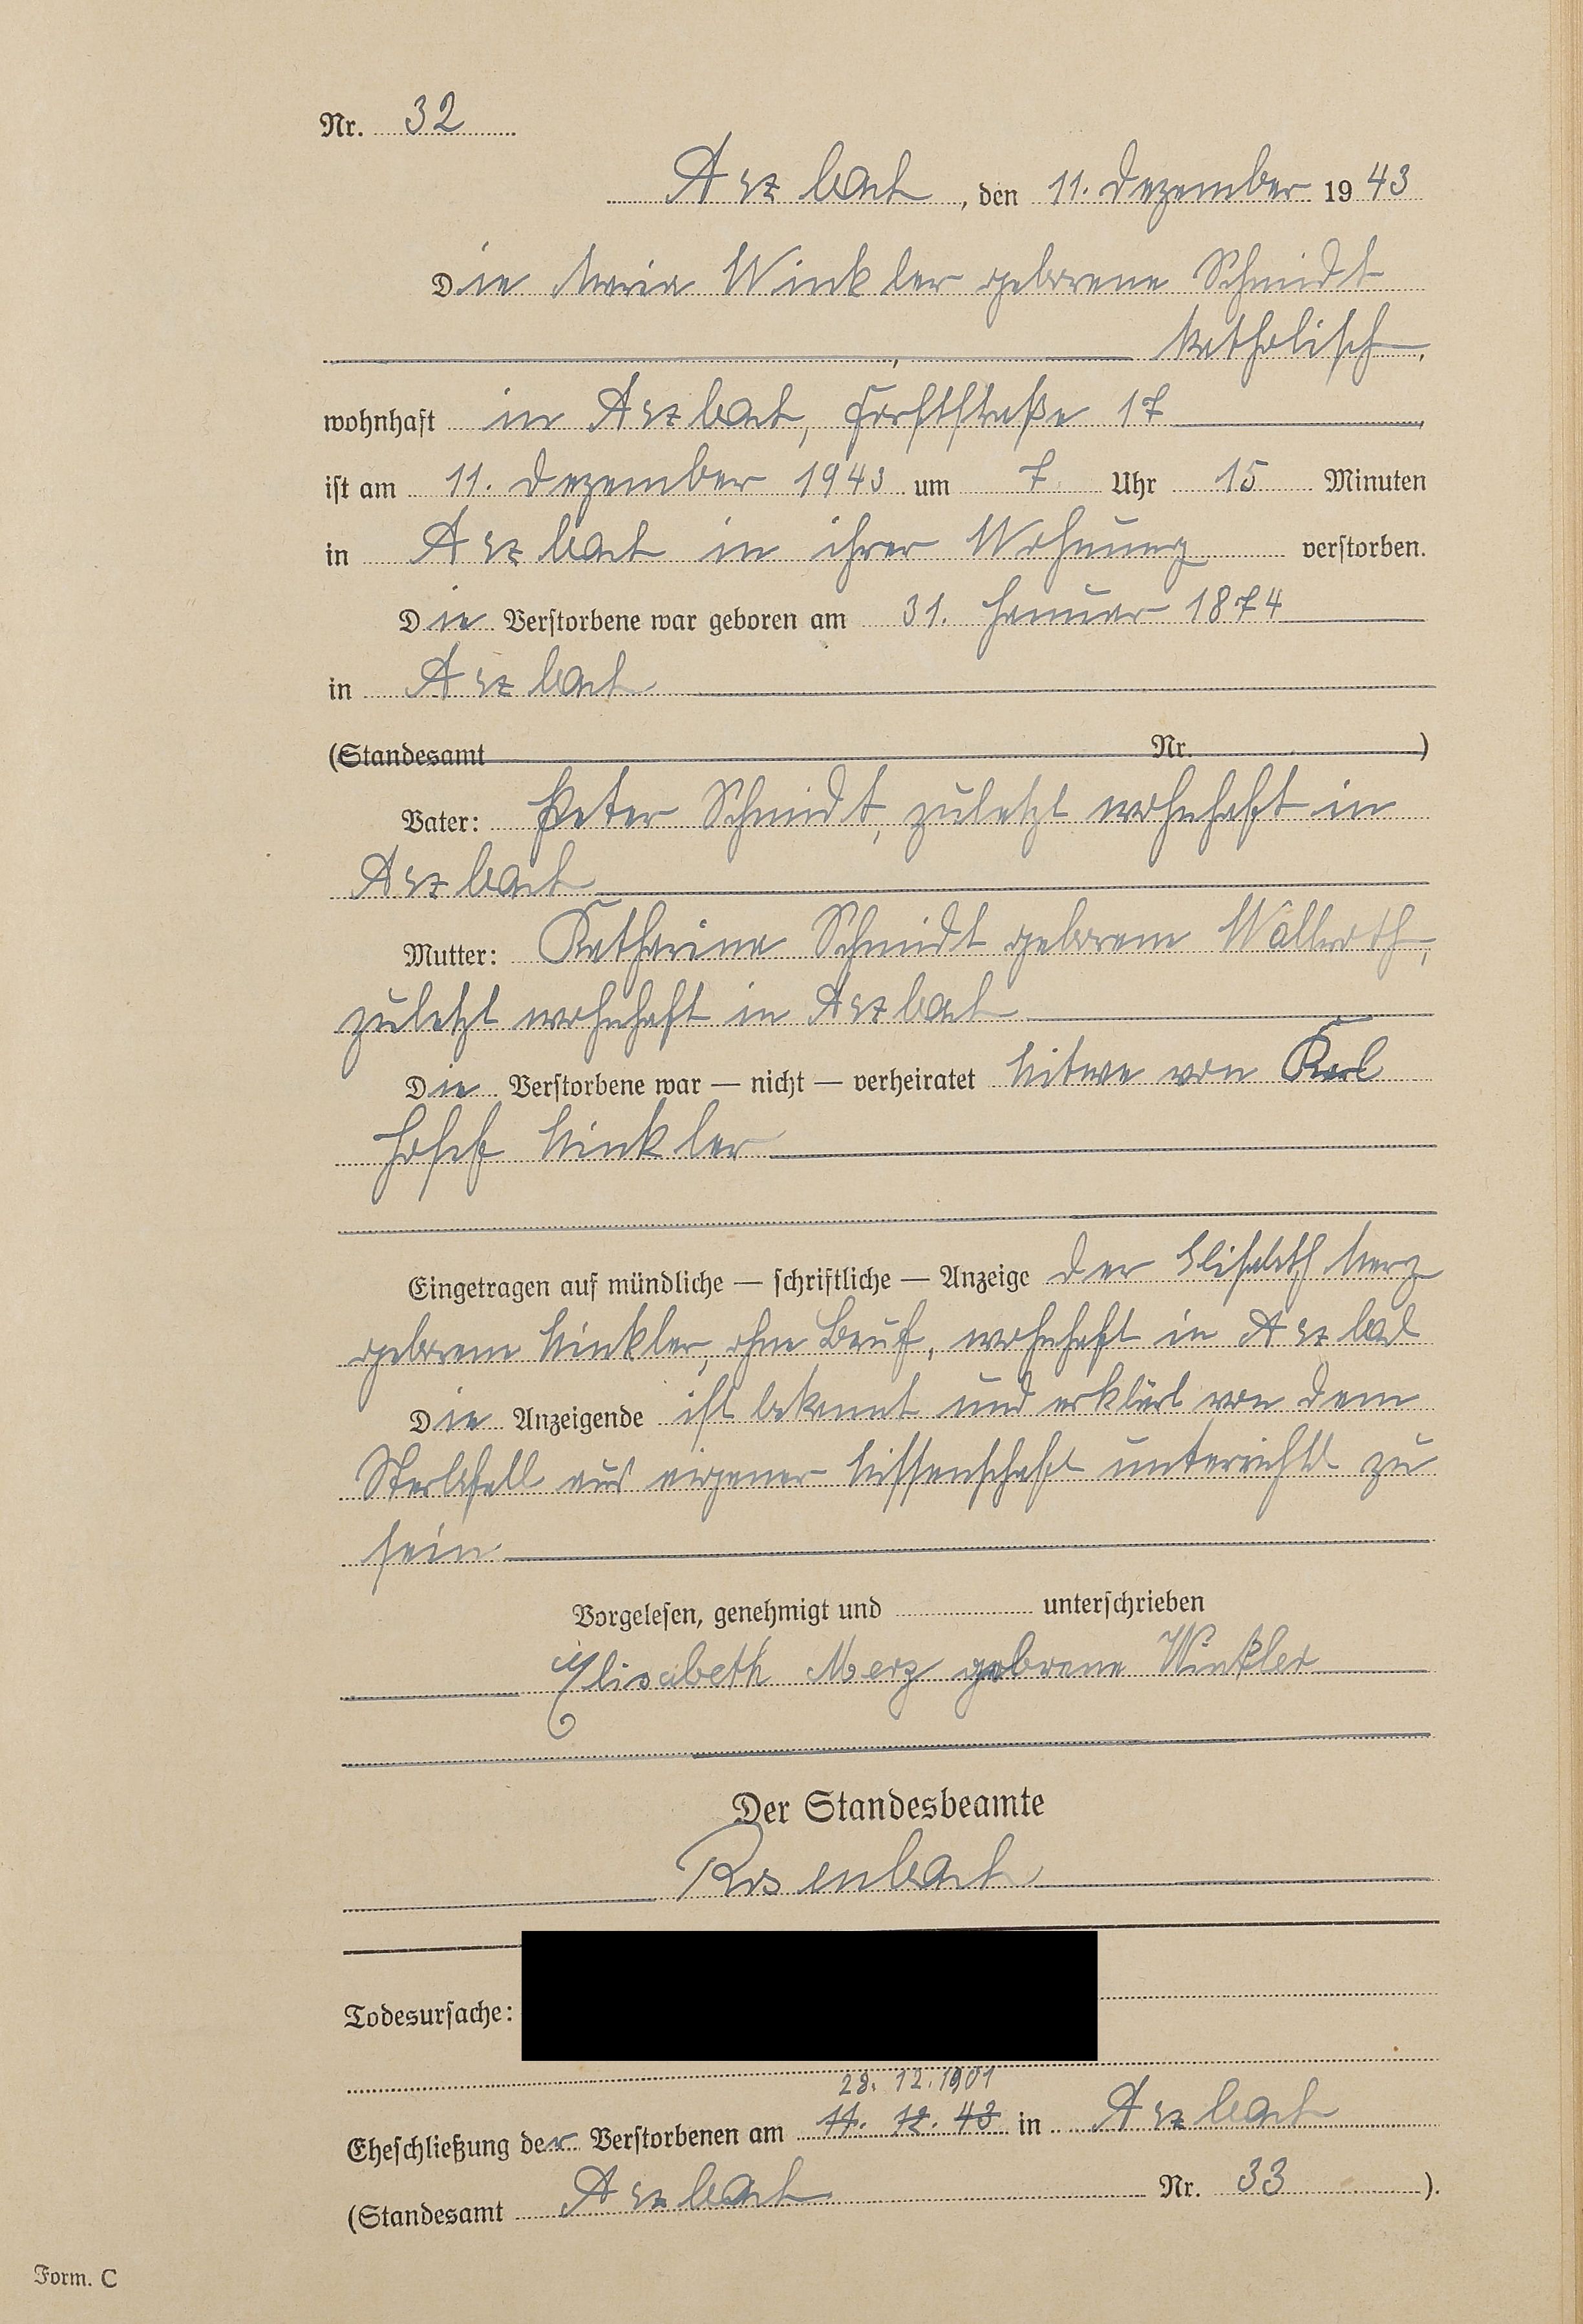 Nr. 32
Arzbach, den 11. Dezember 1943
Die Maria Winkler geborene Schmidt
, katholisch,
wohnhaft in Arzbach, Forststraße 17,
ist am 11. Dezember 1943 um 7 Uhr 15 Minuten
in Arzbach in ihrer Wohnung verstorben.
Die Verstorbene war geboren am 31. Januar 1874
in Arzbach
(Standesamt Nr. )
Vater: Peter Schmidt, zuletzt wohnhaft in
Arzbach
Mutter: Katharina Schmidt geborene Wallroth,
zuletzt wohnhaft in Arzbach
Die Verstorbene war — nicht — verheiratet Witwe von Karl
Josef Winkler
Eingetragen auf mündliche — schriftliche — Anzeige der Elisabeth Merz
geborene Winkler, ohne Beruf, wohnhaft in Arzbach
Die Anzeigende ist bekannt und erklärt von dem
Sterbefall aus eigener Wissenschaft unterrichtet zu
sein
Vorgelesen, genehmigt und unterschrieben
Elisabeth Merz geborene Winkler
Der Standesbeamte
Rosenbach
Todesursache:
28. 12. 1901
Eheschließung der Verstorbenen am 11. 12. 43 in Arzbach
(Standesamt Arzbach Nr. 33 ).
Form. C